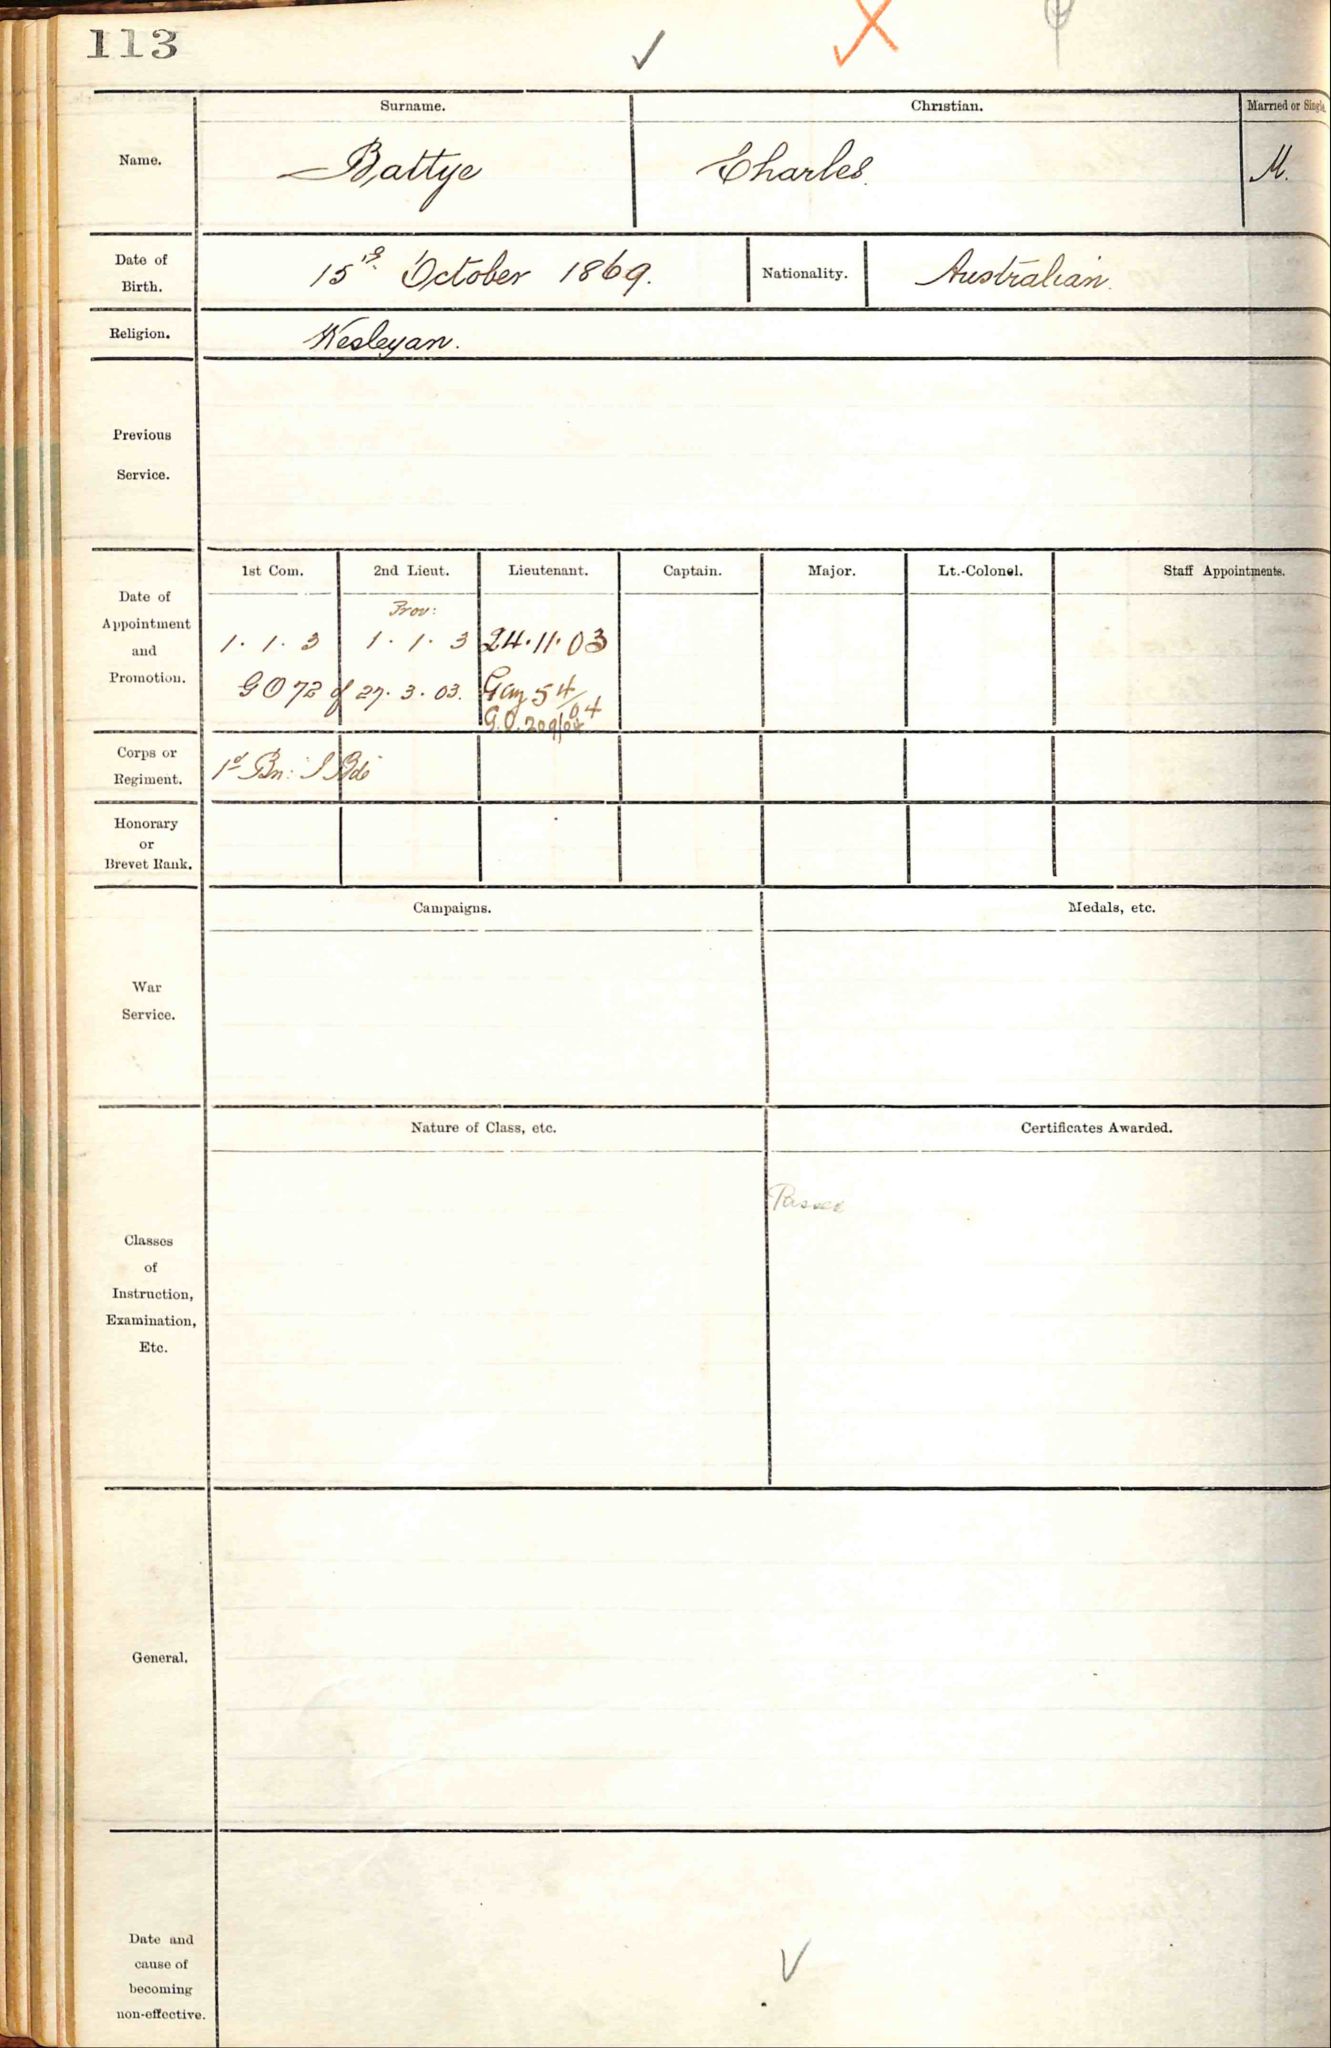 113
Surname. Christian. Married or Single
Name. Battye Charles. M.
Date of Birth. 15th October 1869. Nationality. Australian.
Religion. Wesleyan.
Previous
Service.
1st Com. 2nd Lieut. Lieutenant. Captain. Major. Lt.-Colonel. Staff Appointments.
Date of
Appointment
and
Promotion.
Prov:
1. 1. 3 1. 1. 3 24.11.03
GO 72 of 27. 3. 03. Gaz 54/04
G.O. 209/04
Corps or
Regiment. 1st Bn: I Bde
Honorary
or
Brevet Rank.
Campaigns. Medals, etc.
War
Service.
Nature of Class, etc. Certificates Awarded.
Passed
Classes
of
Instruction,
Examination,
Etc.
General.
Date and
cause of
becoming
non-effective.